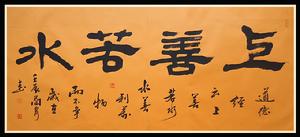 上善若水
道德
经
云上
善
若水
水善
利万
物
而不争
岁在
壬辰